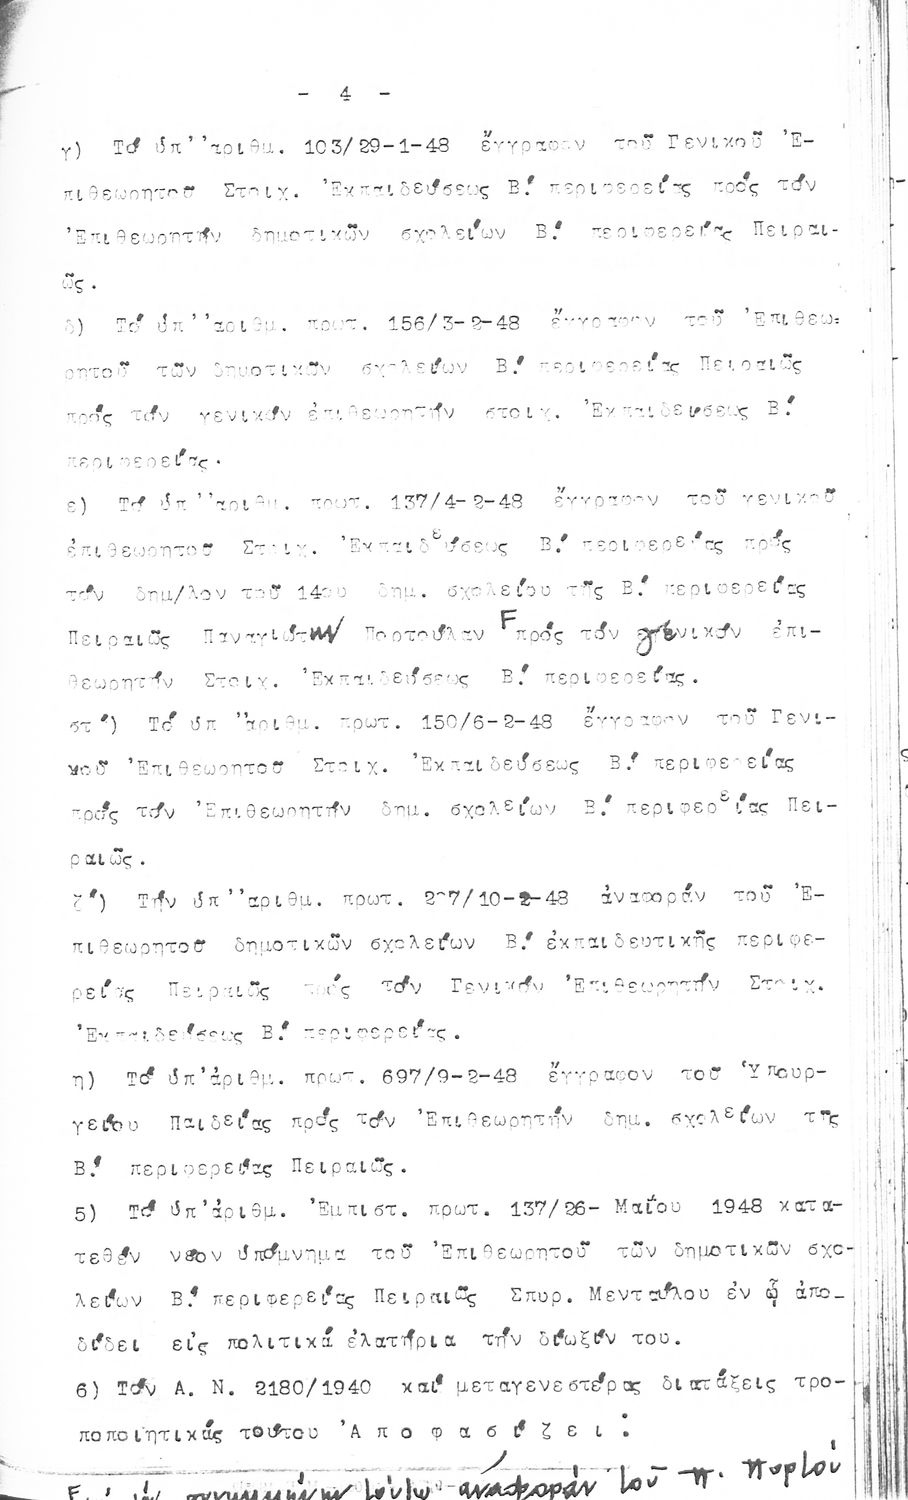 - 4 -
γ) Τό ὑπ''αριθμ. 103/29-1-48 ἔγγραφον τοῦ Γενικοῦ Ἐ-
πιθεωρητοῦ Στοιχ. Ἐκπαιδεύσεως Β! περιφερείας πρός τόν
Ἐπιθεωρητήν δημοτικῶν σχολείων Β! περιφερείας Πειραι-
ῶς.
δ) Τό ὑπ''αριθμ. πρωτ. 156/3-2-48 ἔγγραφον τοῦ Ἐπιθεω-
ρητοῦ τῶν δημοτικῶν σχολείων Β! περιφερείας Πειραιῶς
πρός τόν γενικόν ἐπιθεωρητήν στοιχ. Ἐκπαιδεύσεως Β!
περιφερείας.
ε) Τό ὑπ''αριθμ. πρωτ. 137/4-2-48 ἔγγραφον τοῦ γενικοῦ
ἐπιθεωρητοῦ Στοιχ. Ἐκπαιδεύσεως Β! περιφερείας πρός
τόν δημ/λον τοῦ 14ου δημ. σχολείου τῆς Β! περιφερείας
Πειραιῶς Παναγιώτην Πορτούλαν F πρός τόν γενικόν ἐπι-
θεωρητήν Στοιχ. Ἐκπαιδεύσεως Β! περιφερείας.
στ') Τό ὑπ ''ἀριθμ. πρωτ. 150/6-2-48 ἔγγραφον τοῦ Γενι-
κοῦ Ἐπιθεωρητοῦ Στοιχ. Ἐκπαιδεύσεως Β! περιφερείας
πρός τόν Ἐπιθεωρητήν δημ. σχολείων Β! περιφερείας Πει-
ραιῶς.
ζ') Τήν ὑπ''αριθμ. πρωτ. /10-2-48 ἀναφοράν τοῦ Ἐ-
πιθεωρητοῦ δημοτικῶν σχολείων Β! ἐκπαιδευτικῆς περιφε-
ρείας Πειραιῶς πρός τόν Γενικόν Ἐπιθεωρητήν Στοιχ.
Ἐκπαιδεύσεως Β! περιφερείας.
η) Τό ὑπ'ἀριθμ. πρωτ. 697/9-2-48 ἔγγραφον τοῦ Ὑπουρ-
γείου Παιδείας πρός τόν Ἐπιθεωρητήν δημ. σχολείων τῆς
Β! περιφερείας Πειραιῶς.
5) Τό ὑπ'ἀριθμ. Ἐμπιστ. πρωτ. 137/26- Μαΐου 1948 κατα-
τεθέν νέον ὑπόμνημα τοῦ Ἐπιθεωρητοῦ τῶν δημοτικῶν σχο-
λείων Β! περιφερείας Πειραιῶς Σπυρ. Μενταύλου ἐν ᾧ ἀπο-
δίδει εἰς πολιτικά ἐλατήρια τήν δίωξίν του.
6) Τόν Α. Ν. 2180/1940 καί μεταγενεστέρας διατάξεις τρο-
ποποιητικάς τούτου Ἀ π ο φ α σ ί ζ ε ι :
F ἀναφοράν τοῦ Π. Πορτού